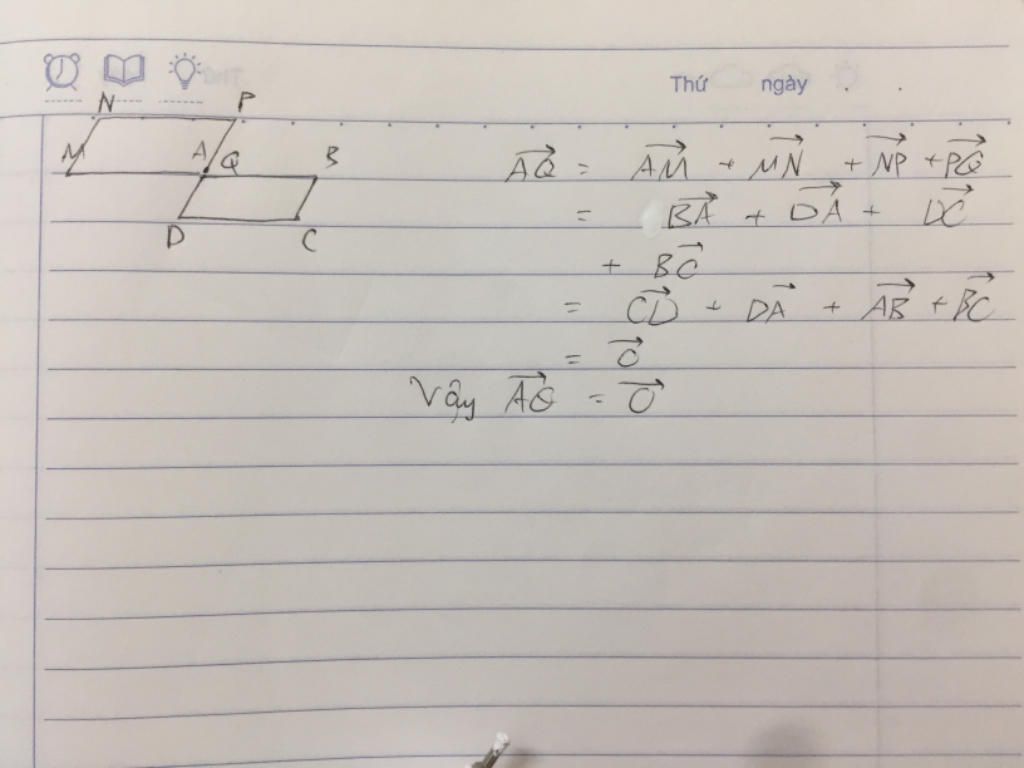 Thứ ngày
N P
M A Q B
D C
AQ⃗ = AM⃗ + MN⃗ + NP⃗ + PQ⃗
= BA⃗ + DA⃗ + DC⃗
+ BC⃗
= CD⃗ + DA⃗ + AB⃗ + BC⃗
= 0⃗
Vậy AQ⃗ = 0⃗